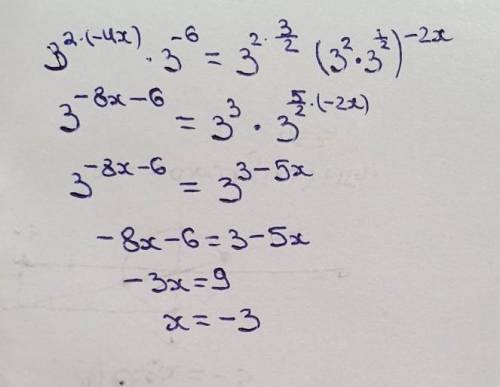 3^{2·(-4x)} · 3^{-6} = 3^{2·\frac{3}{2}} (3^2·3^{\frac{1}{2}})^{-2x}
3^{-8x-6} = 3^3 · 3^{\frac{5}{2}·(-2x)}
3^{-8x-6} = 3^{3-5x}
-8x-6=3-5x
-3x=9
x=-3